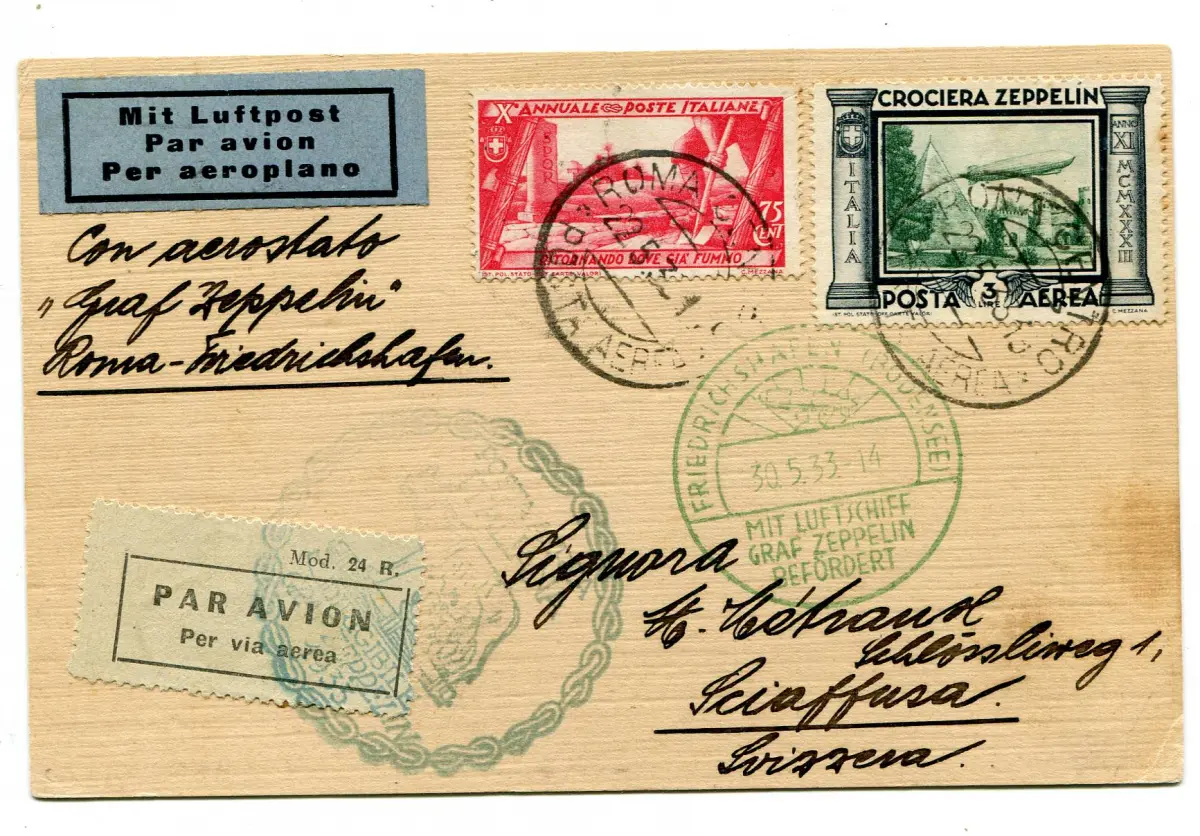 Mit Luftpost
Par avion
Per aeroplano
Xº ANNUALE POSTE ITALIANE
75
CENT
RITORNANDO DOVE SIA' FUMMO
IST. POL. STATO-OFF. CARTE VALORI
C. MEZZANA
CROCIERA ZEPPELIN
ITALIA
ANNO
XI
MCMXXXIII
POSTA 3 LIRE AEREA
IST. POL. STATO-OFF. CARTE VALORI
C. MEZZANA
ROMA
POSTA AEREA
ROMA
AEREA
Con aerostato
"Graf Zeppelin"
Roma-Friedrichshafen.
FRIEDRICHSHAFEN (BODENSEE)
30.5.33-14
MIT LUFTSCHIFF
GRAF ZEPPELIN
BEFÖRDERT
Mod. 24 R.
PAR AVION
Per via aerea
Signora
M. Métraux
Schlössliweg 1,
Sciaffusa.
Svizzera.